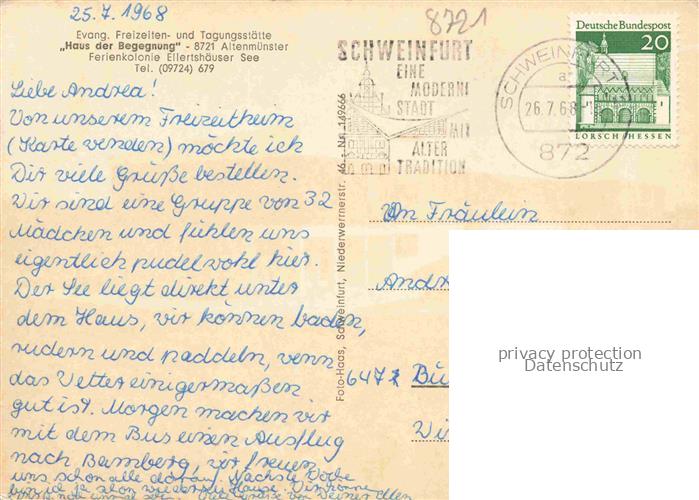 25.7.1968
8721
Evang. Freizeiten- und Tagungsstätte
„Haus der Begegnung" - 8721 Altenmünster
Ferienkolonie Ellertshäuser See
Tel. (09724) 679
Liebe Andrea!
Von unserem Freizeitheim
(Karte wenden) möchte ich
Dir viele Grüße bestellen.
Wir sind eine Gruppe von 32
Mädchen und fühlen uns
eigentlich pudelwohl hier.
Der See liegt direkt unter
dem Haus, wir können baden,
rudern und paddeln, wenn
das Wetter einigermaßen
gut ist. Morgen machen wir
mit dem Bus einen Ausflug
nach Bamberg, wir freuen
uns schon alle darauf. Nächste Woche
bin ich ja schon wieder zu Hause.
Foto-Haas, Schweinfurt, Niederwerrnerstr. 46 - Nr. 149666
SCHWEINFURT
EINE
MODERNE
STADT
MIT
ALTER
TRADITION
SCHWEINFURT
a
26.7.68
872
Deutsche Bundespost
20
LORSCH/HESSEN
An Fräulein
Andr
6471 Bü
Wi
privacy protection
Datenschutz